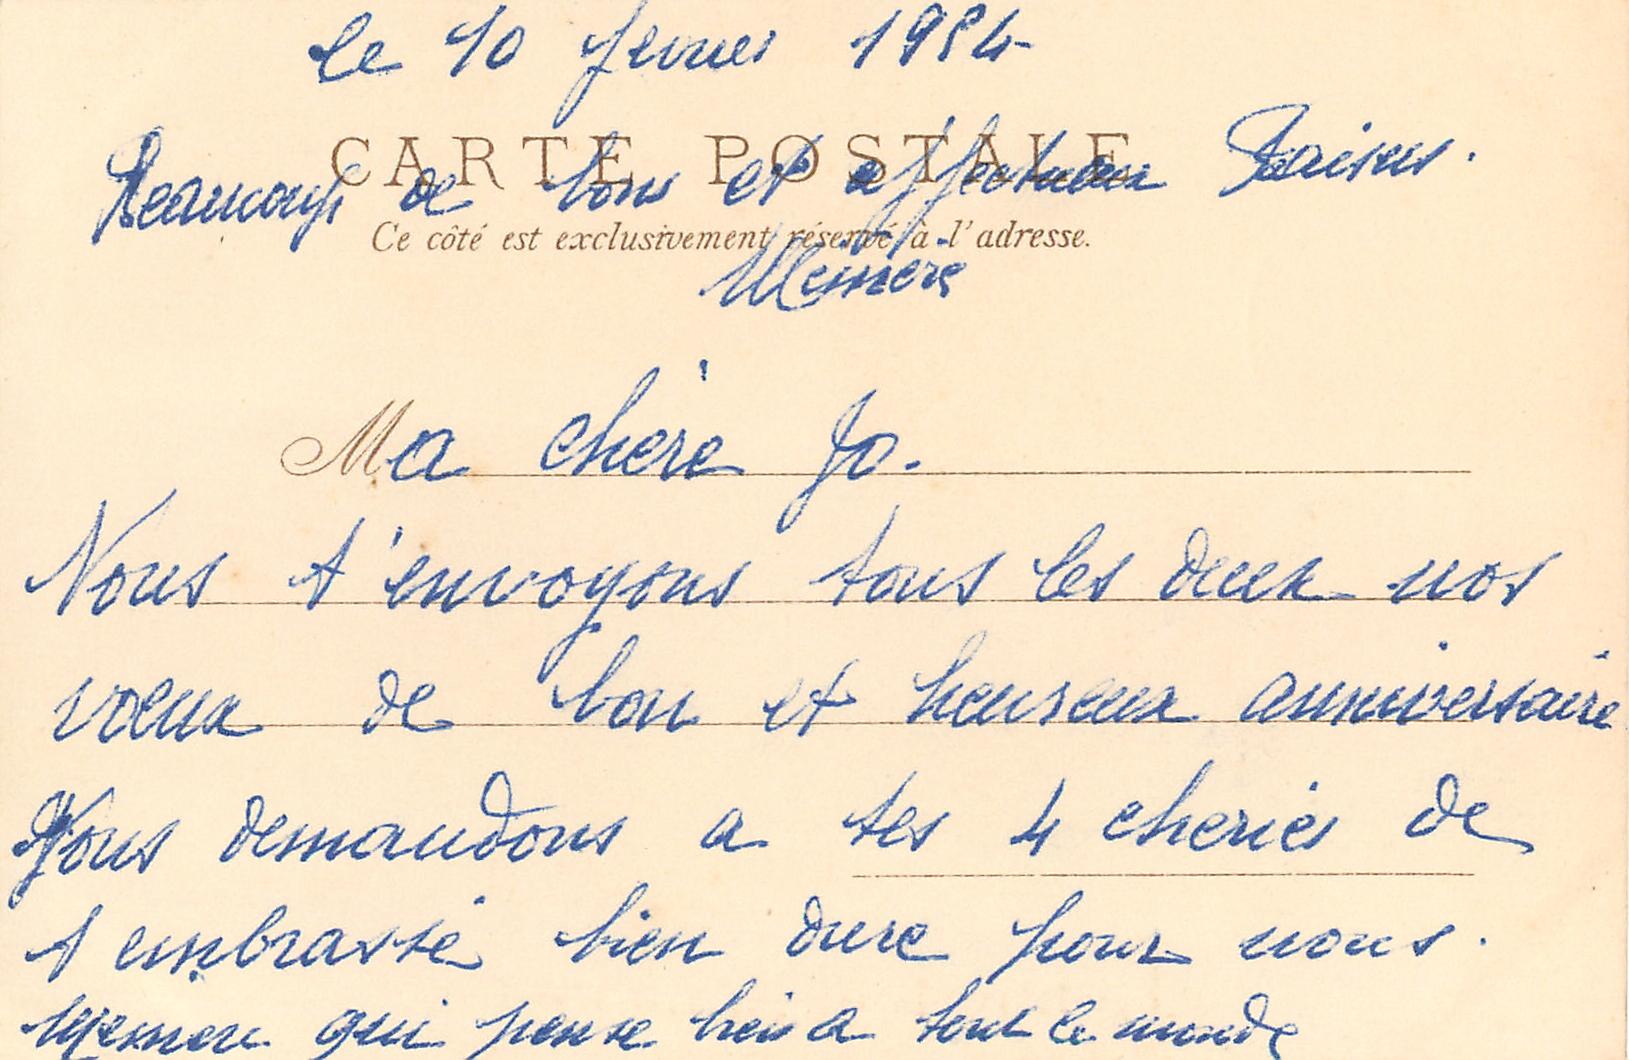 le 10 fevrier 1984
CARTE POSTALE
Beaucoup de bons et affectueux Baisers.
Ce côté est exclusivement réservé à l'adresse.
Memere
Ma chère Jo.
Nous t'envoyons tous les deux nos
vœux de bon et heureux anniversaire
Nous demandons a tes 4 cheries de
t embrassé bien dure pour nous.
qui pense bien a tout le monde